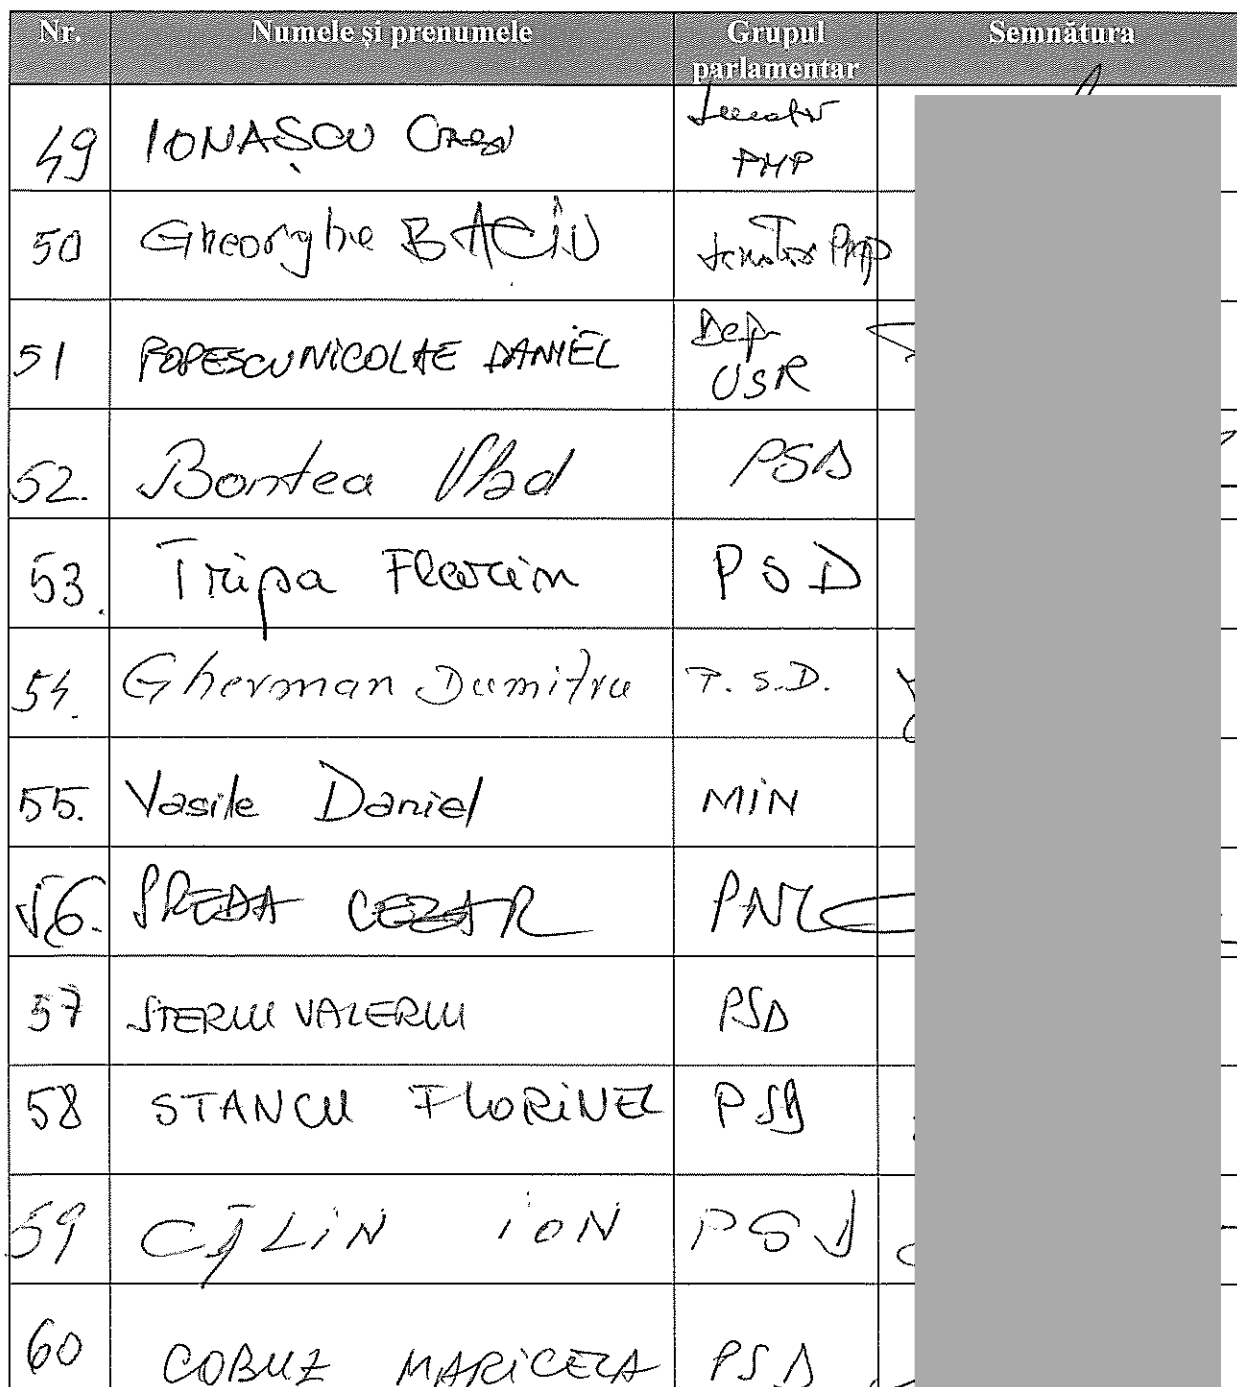 Nr. Numele și prenumele Grupul parlamentar Semnătura
49 IONAȘCU Senator PMP
50 Gheorghe BACIU senator PMP
51 POPESCU NICOLAE DANIEL Dep. USR
52. Bontea Vlad PSD
53. Tripa Florin PSD
54. Gherman Dumitru P.S.D.
55. Vasile Daniel MIN
56. PREDA CEZAR PNL
57 STERIU VALERIU PSD
58 STANCU FLORINEL PSD
59 CĂLIN ION PSD
60 COBUZ MARICELA PSD